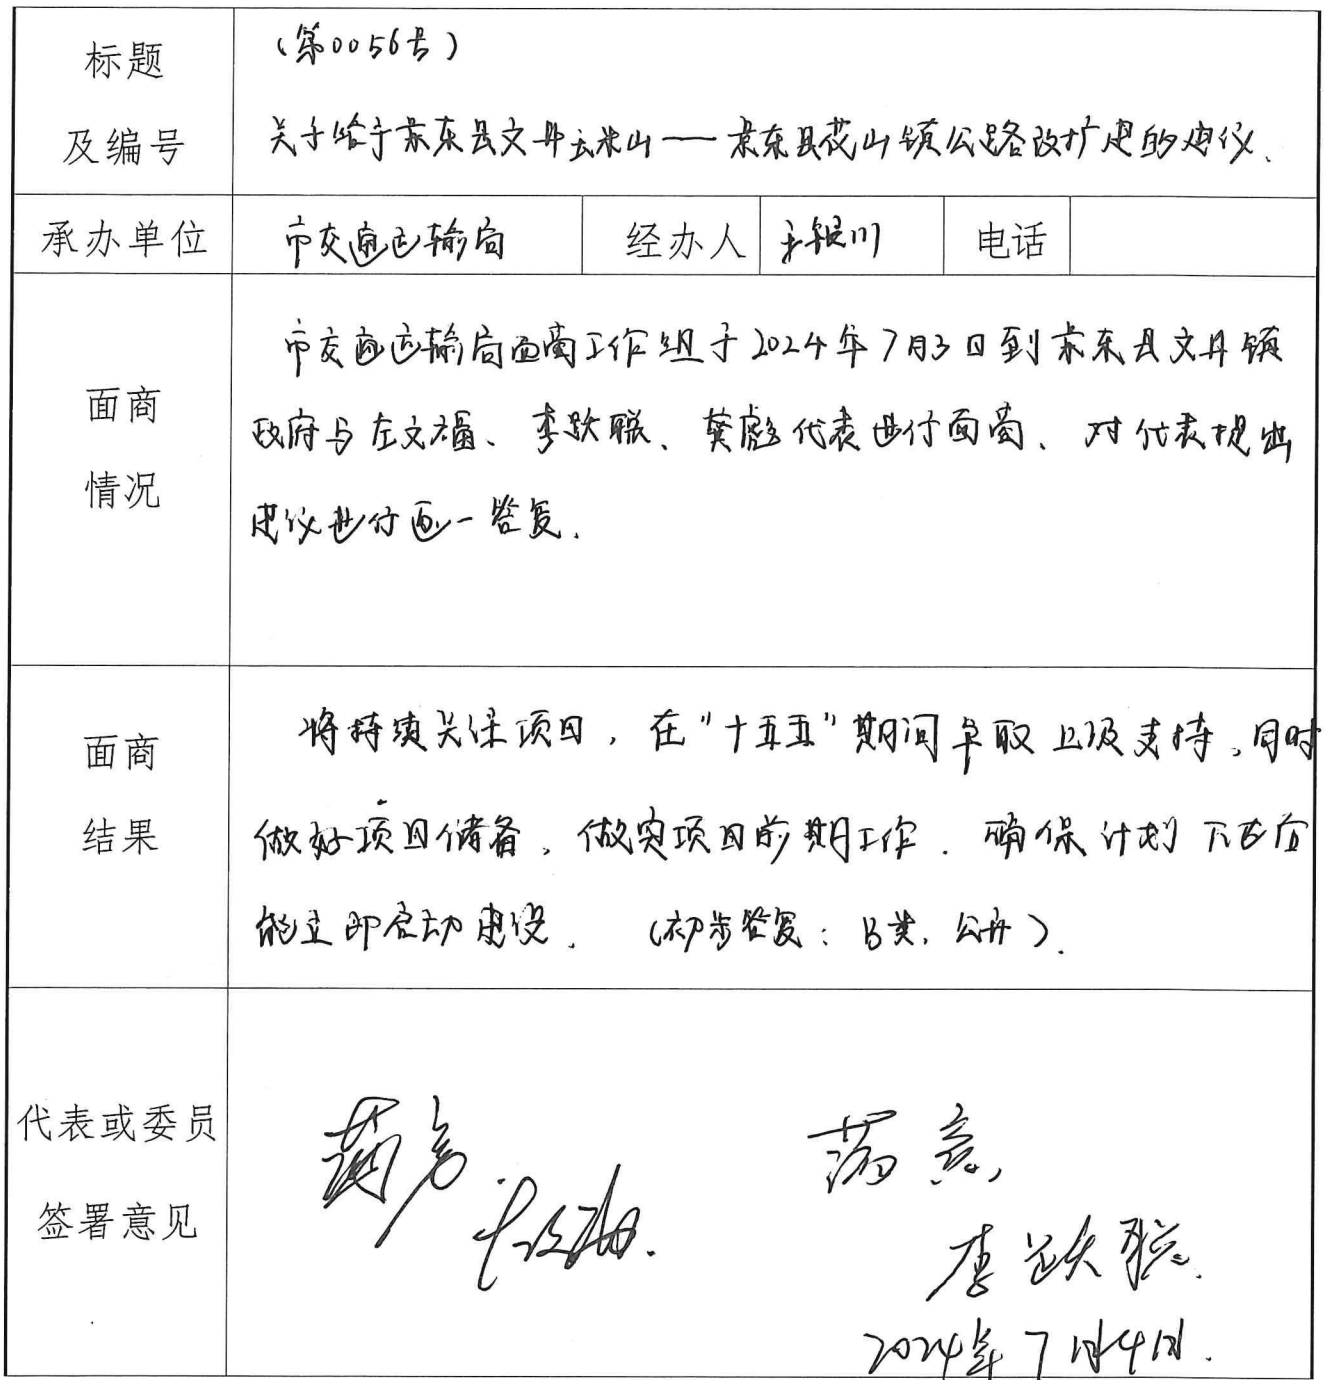 标题
及编号
(第0056号)
关于给予景东县文井玉米山——景东县花山镇公路改扩建的建议.
承办单位 市交通运输局 经办人 银川 电话
面商
情况
市交通运输局面商工作组于2024年7月3日到景东县文井镇
政府与左文福、李跃聪、龚彪代表进行面商、对代表提出
建议进行逐一答复.
面商
结果
将持续关注项目,在"十五五"期间争取上级支持,同时
做好项目储备,做实项目前期工作.确保计划下达后
能立即启动建设.(初步答复:B类,公开).
代表或委员
签署意见
满意
满意,
李跃聪.
2024年7月4日.